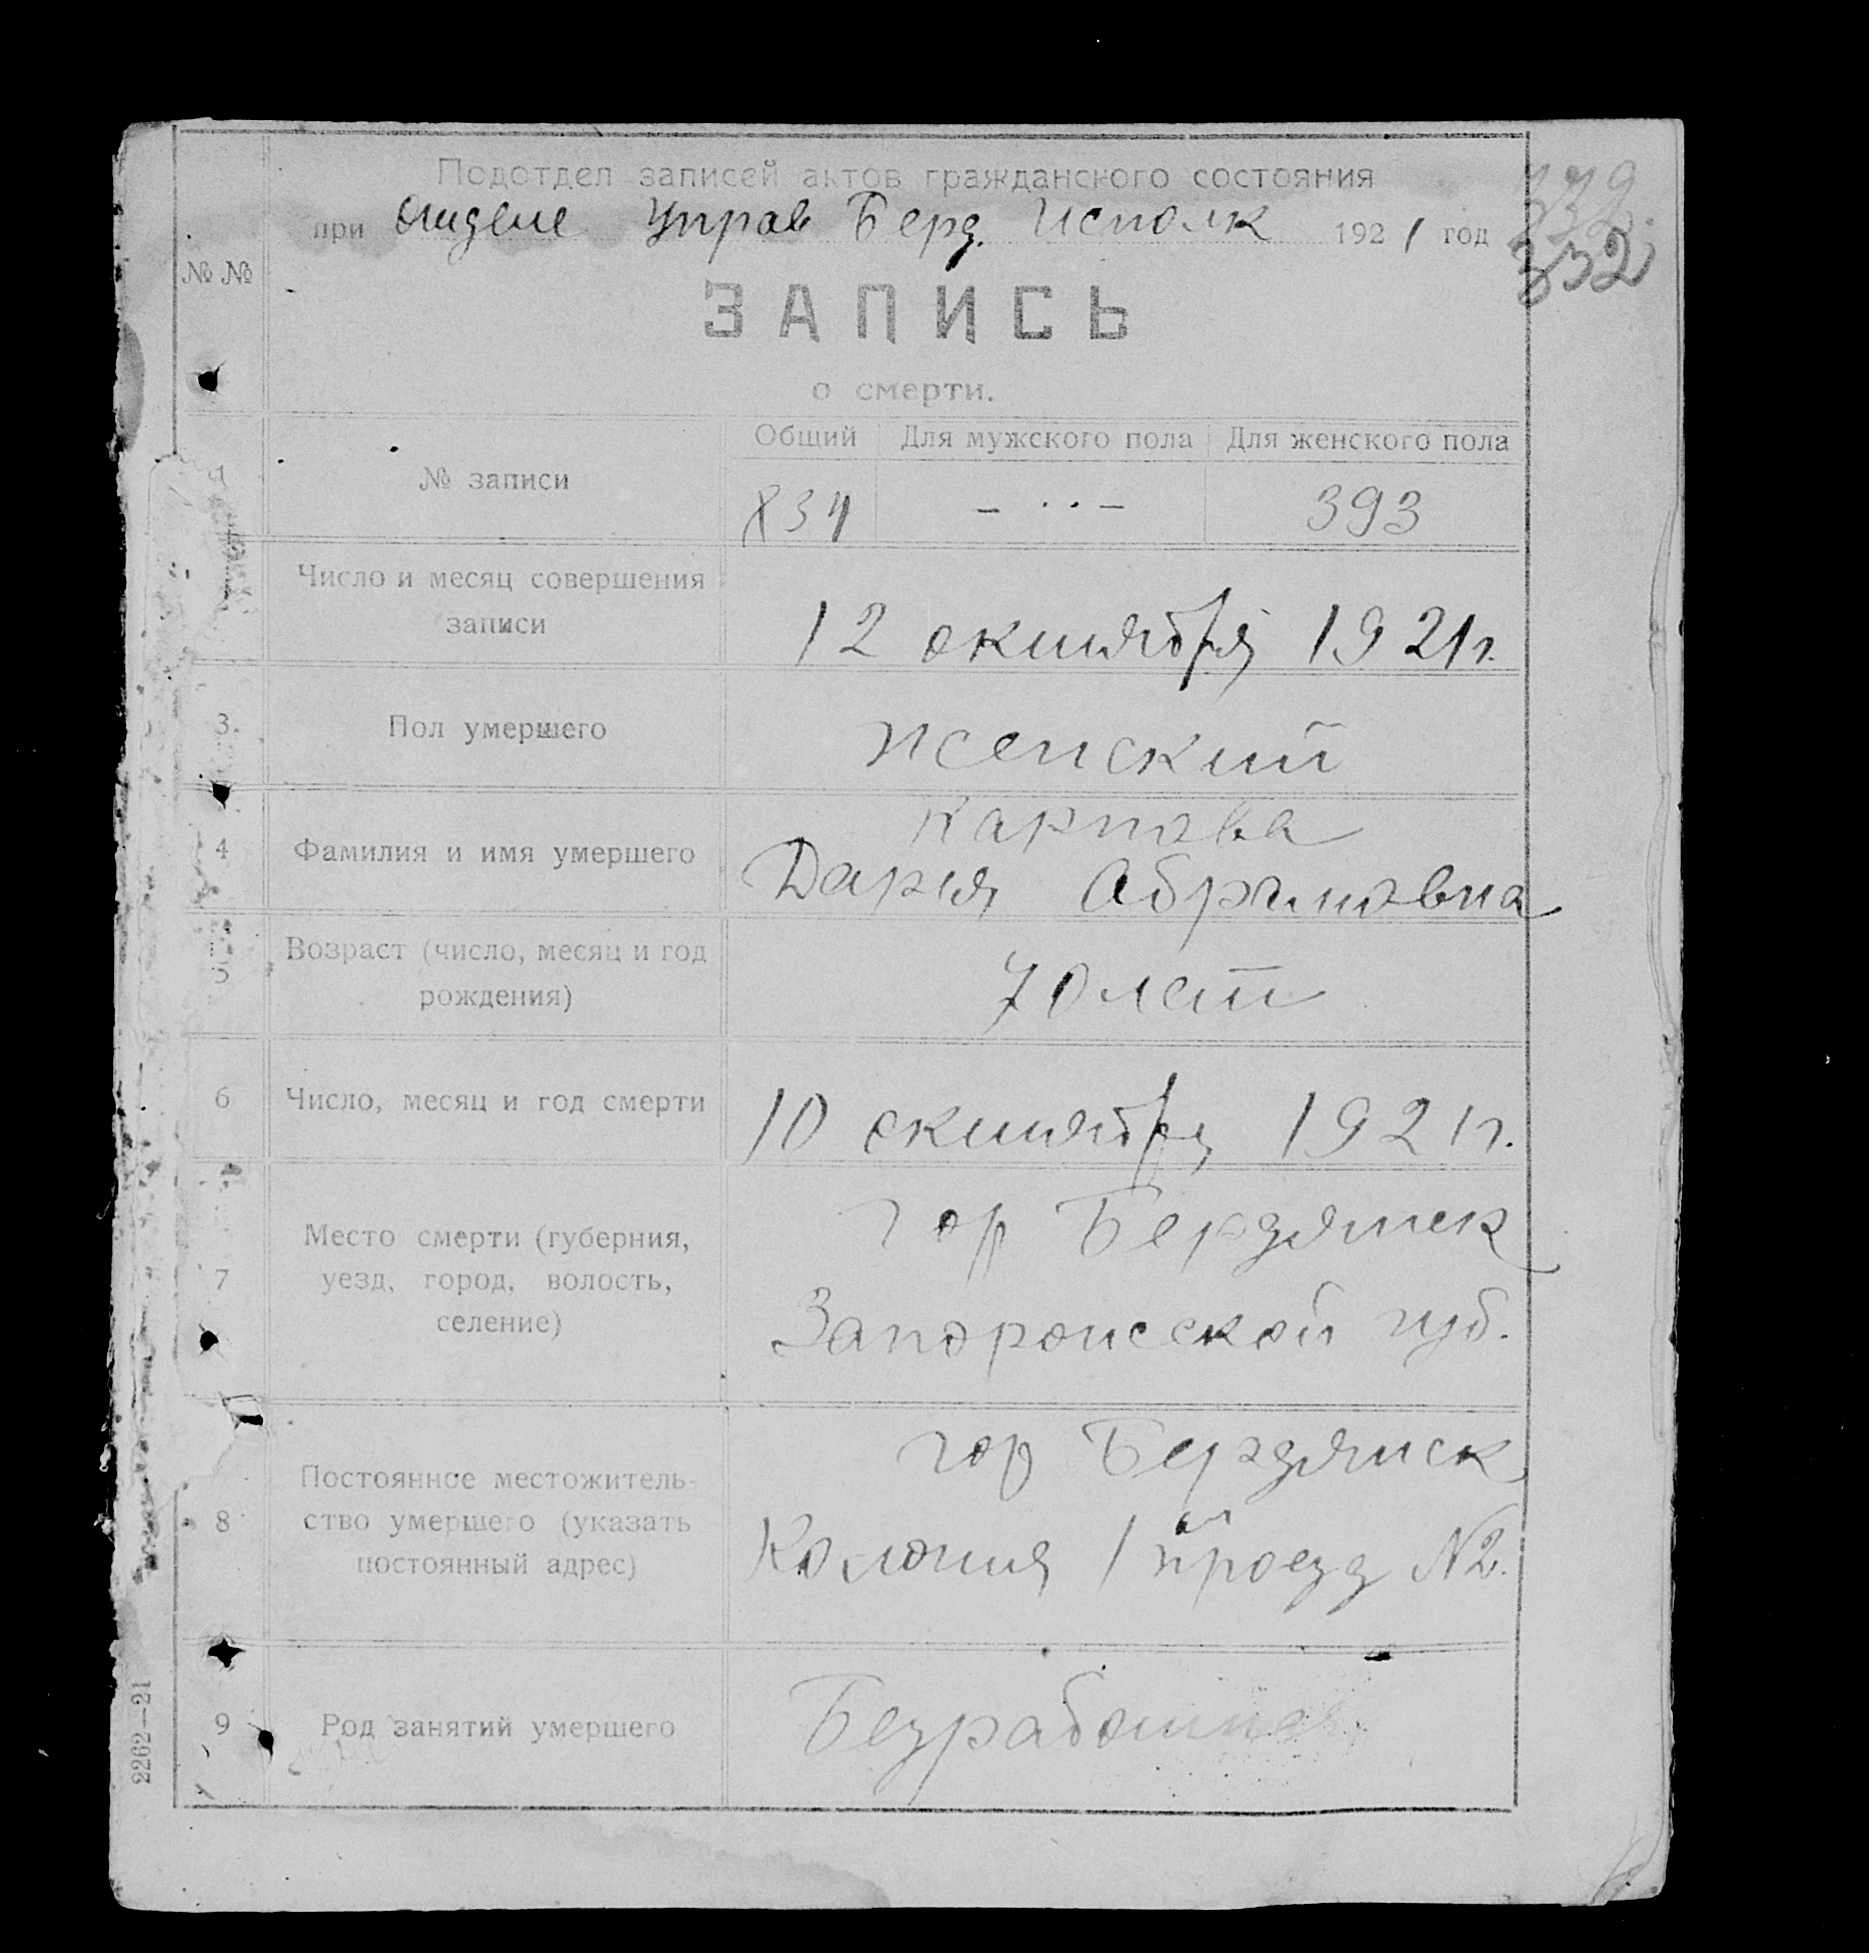 332
332
Подотдел записей актов гражданского состояния
при отделе Управ Берд. Исполк 1921 год
№ №
ЗАПИСЬ
о смерти.
Общий Для мужского пола Для женского пола
№ записи
834 - ·· - 393
Число и месяц совершения
записи
12 октября 1921 г.
3. Пол умершего женский
Карпова
4 Фамилия и имя умершего
Дария Абрамовна
5 Возраст (число, месяц и год
рождения)
70 лет
6 Число, месяц и год смерти 10 октября 1921 г.
7 Место смерти (губерния,
уезд, город, волость,
селение)
гор Бердянск
Запорожской губ.
8 Постоянное местожитель-
ство умершего (указать
постоянный адрес)
гор Бердянск
Колония 1й проезд №2.
9 Род занятий умершего
2262—21